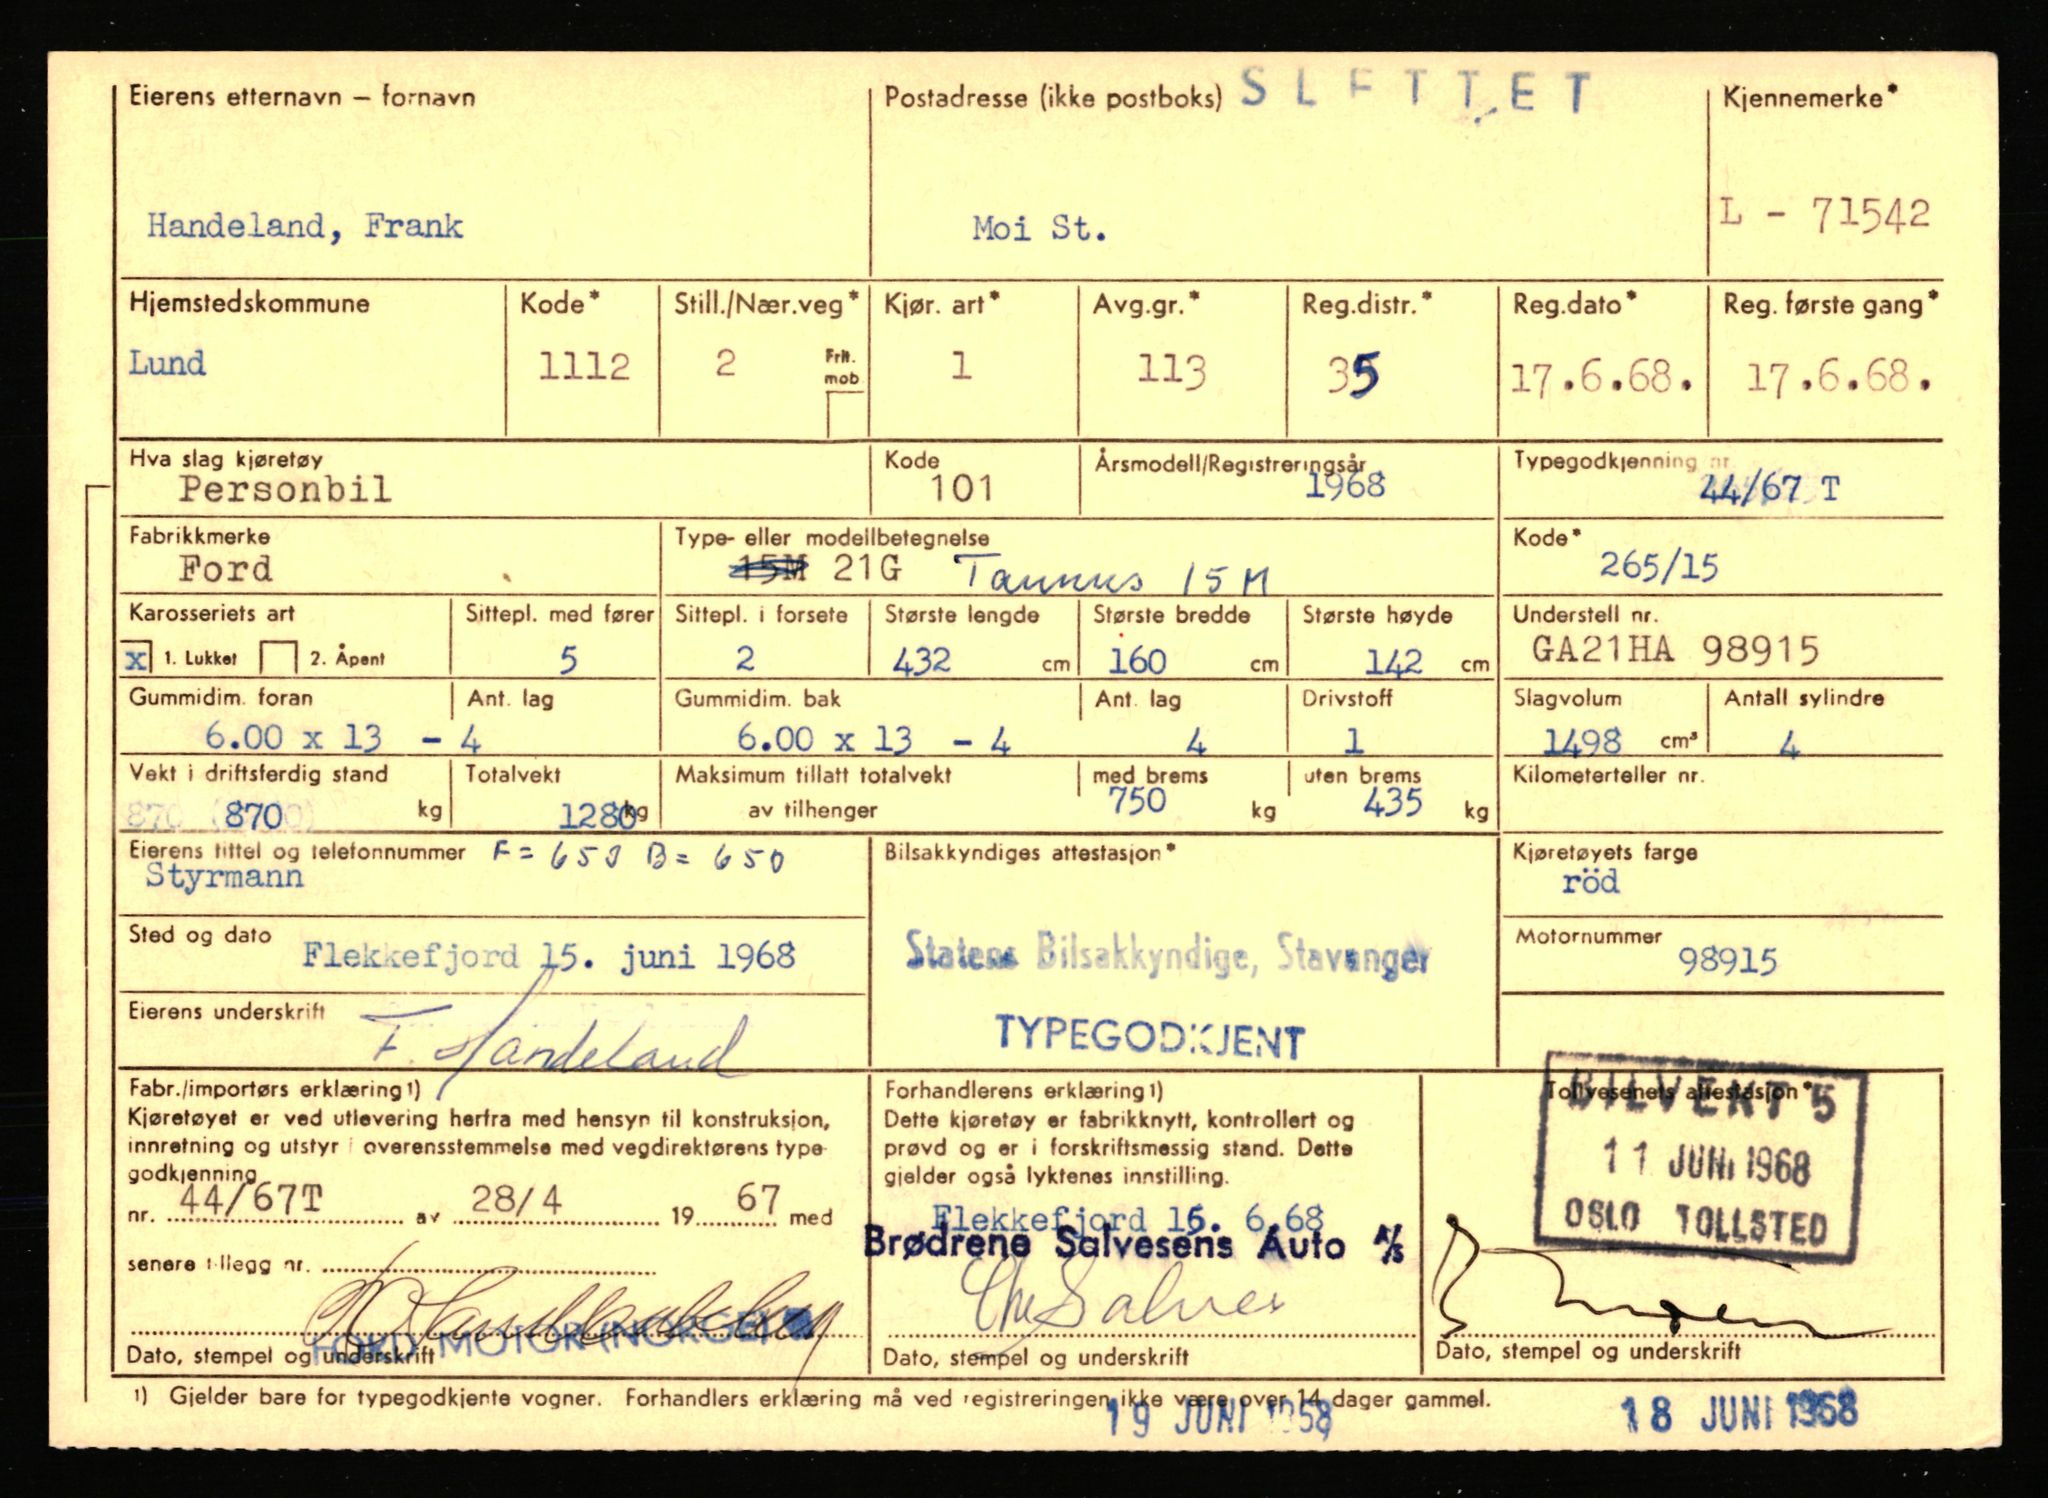 Eierens etternavn – fornavn Postadresse (ikke postboks) SLETTET Kjennemerke*
Handeland, Frank Moi St. L - 71542
Hjemstedskommune Kode* Still./Nær.veg* Kjør. art* Avg.gr.* Reg.distr.* Reg.dato* Reg. første gang*
Lund 1112 2 Frit. mob 1 113 35 17.6.68. 17.6.68.
Hva slag kjøretøy Kode Årsmodell/Registreringsår Typegodkjenning nr
Personbil 101 1968 44/67 T
Fabrikkmerke Type- eller modellbetegnelse Kode*
Ford 15M 21G Taunus 15M 265/15
Karosseriets art Sittepl. med fører Sittepl. i forsete Største lengde Største bredde Største høyde Understell nr.
x 1. Lukket 2. Åpent 5 2 432 cm 160 cm 142 cm GA21HA 98915
Gummidim. foran Ant. lag Gummidim. bak Ant. lag Drivstoff Slagvolum Antall sylindre
6.00 x 13 - 4 6.00 x 13 - 4 4 1 1498 cm³ 4
Vekt i driftsferdig stand Totalvekt Maksimum tillatt totalvekt med brems uten brems Kilometerteller nr.
870 kg 1280 kg av tilhenger 750 kg 435 kg
Eierens tittel og telefonnummer F = 650 B = 650 Bilsakkyndiges attestasjon* Kjøretøyets farge
Styrmann röd
Sted og dato Flekkefjord 15. juni 1968 Statens Bilsakkyndige, Stavanger Motornummer
98915
Eierens underskrift F. Handeland TYPEGODKJENT
Fabr./importørs erklæring 1) Forhandlerens erklæring 1) Tollvesenets attestasjon*
Kjøretøyet er ved utlevering herfra med hensyn til konstruksjon, Dette kjøretøy er fabrikknytt, kontrollert og BILVEKT 5
innretning og utstyr i overensstemmelse med vegdirektørens type- prøvd og er i forskriftsmessig stand. Dette 11 JUNI 1968
godkjenning gjelder også lyktenes innstilling.
nr. 44/67T av 28/4 19 67 med Flekkefjord 15. 6.68 OSLO TOLLSTED
senere tillegg nr. Brødrene Salvesens Auto A/S
FORD MOTOR (NORGE)
Dato, stempel og underskrift Dato, stempel og underskrift Dato, stempel og underskrift
1) Gjelder bare for typegodkjente vogner. Forhandlers erklæring må ved registreringen ikke være over 14 dager gammel.
19 JUNI 1968 18 JUNI 1968